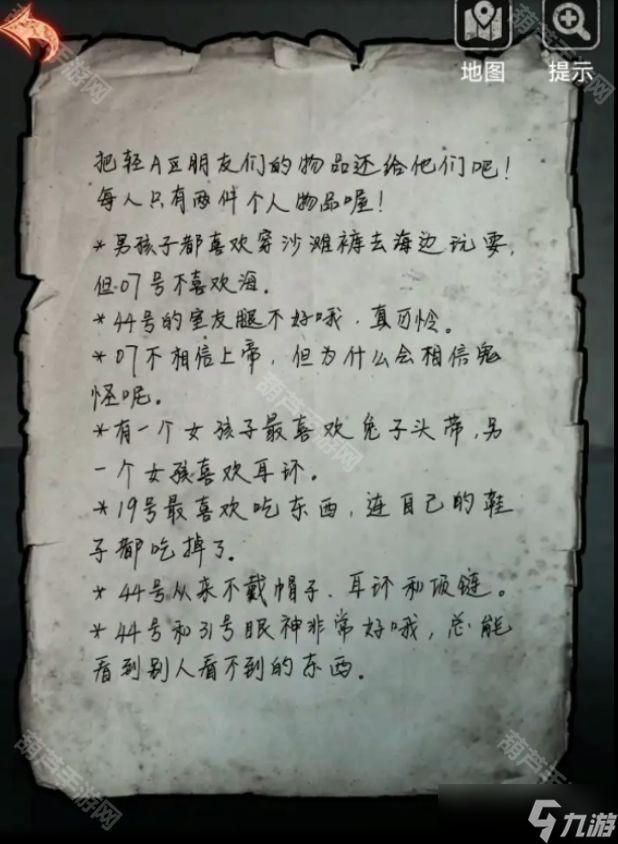 地图
提示
把轻A豆朋友们的物品还给他们吧！
每人只有两件个人物品喔！
*男孩子都喜欢穿沙滩裤去海边玩耍，
但07号不喜欢海。
*44号的室友腿不好哦，真可怜。
*07不相信上帝，但为什么会相信鬼
怪呢。
*有一个女孩子最喜欢兔子头带，另
一个女孩喜欢耳环。
*19号最喜欢吃东西，连自己的鞋
子都吃掉了。
*44号从来不戴帽子、耳环和项链。
*44号和31号眼神非常好哦，总能
看到别人看不到的东西。
葫芦手游网
葫芦手游网
葫芦手游网
葫芦手游网
葫芦手游网
九游